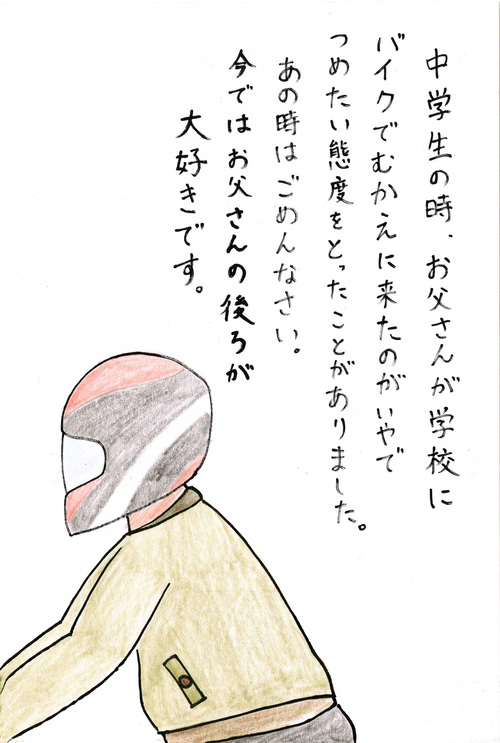 中学生の時、お父さんが学校に
バイクでむかえに来たのがいやで
つめたい態度をとったことがありました。
あの時はごめんなさい。
今ではお父さんの後ろが
大好きです。